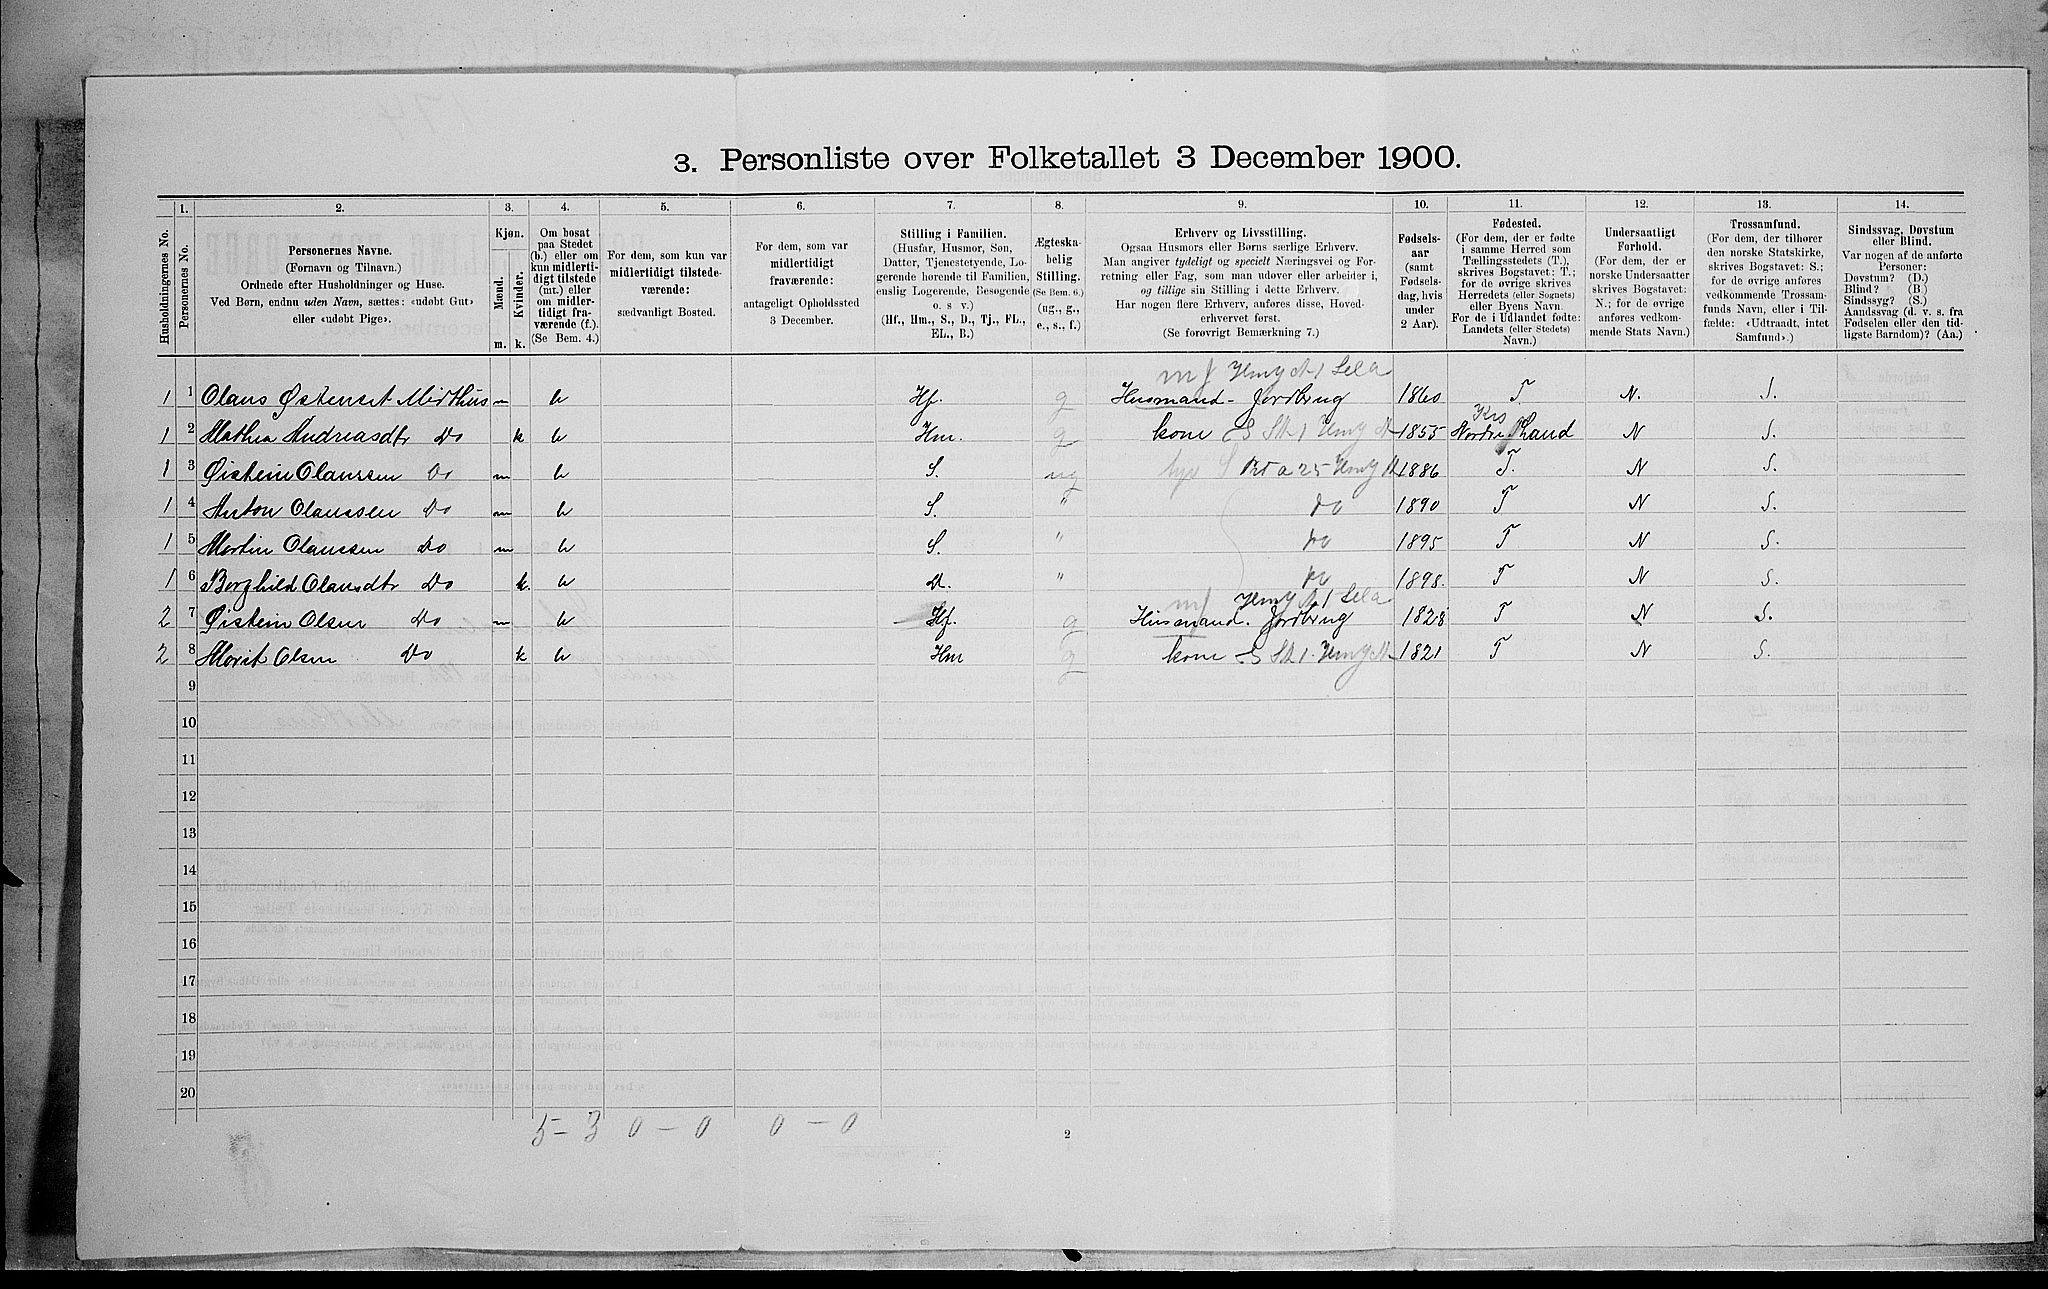 3. Personliste over Folketallet 3 December 1900.
Husholdningernes No.
1. Personernes No.
2. Personernes Navne.
(Fornavn og Tilnavn.)
Ordnede efter Husholdninger og Huse.
Ved Børn, endnu uden Navn, sættes: «udøbt Gut»
eller «udøbt Pige».
3. Kjøn.
Mænd. m.
Kvinder. k.
4. Om bosat
paa Stedet
(b.) eller om
kun midlerti-
digt tilstede
(mt.) eller
om midler-
tidigt fra-
værende (f.).
(Se Bem. 4.)
5. For dem, som kun var
midlertidigt tilstede-
værende:
sædvanligt Bosted.
6. For dem, som var
midlertidigt
fraværende:
antageligt Opholdssted
3 December.
7. Stilling i Familien.
(Husfar, Husmor, Søn,
Datter, Tjenestetyende, Lo-
gerende hørende til Familien,
enslig Logerende, Besøgende
o. s. v.)
(Hf., Hm., S., D., Tj., FL.,
EL., B.)
8. Ægteska-
belig
Stilling.
(Se Bem. 6.)
(ug., g.,
e., s., f.)
9. Erhverv og Livsstilling.
Ogsaa Husmors eller Børns særlige Erhverv.
Man angiver tydeligt og specielt Næringsvei og For-
retning eller Fag, som man udøver eller arbeider i,
og tillige sin Stilling i dette Erhverv.
Har nogen flere Erhverv, anføres disse, Hoved-
erhvervet først.
(Se forøvrigt Bemærkning 7.)
10. Fødsels-
aar
(samt
Fødsels-
dag, hvis
under
2 Aar).
11. Fødested.
(For dem, der er fødte
i samme Herred som
Tællingsstedets (T.),
skrives Bogstavet: T.;
for de øvrige skrives
Herredets (eller Sognets)
eller Byens Navn.
For de i Udlandet fødte:
Landets (eller Stedets)
Navn.)
12. Undersaatligt
Forhold.
(For dem, der er
norske Undersaatter
skrives Bogstavet:
N.; for de øvrige
anføres vedkom-
mende Stats Navn.)
13. Trossamfund.
(For dem, der tilhører
den norske Statskirke,
skrives Bogstavet: S.;
for de øvrige anføres
vedkommende Trossam-
funds Navn, eller i Til-
fælde: «Udtraadt, intet
Samfund».)
14. Sindssvag, Døvstum
eller Blind.
Var nogen af de anførte
Personer:
Døvstum? (D.)
Blind? (B.)
Sindssyg? (S.)
Aandssvag (d. v. s. fra
Fødselen eller den tid-
ligste Barndom)? (Aa.)
1 1 Olaus Østensen m b Hf. g Husmand - Jordbrug 1860 T N. S.
1 2 Mathea Andreasdtr Do k b Hm. g kone 1855 Nordre Land N S.
1 3 Øistein Olaussen Do m b S. ug 1886 T. N S.
1 4 Anton Olaussen Do m b S. " do 1890 T N S.
1 5 Martin Olaussen Do m b S. " do 1895 T N S.
1 6 Borghild Olausdtr Do k. b D. " do 1898. T N S.
2 7 Øistein Olsen Do m b Hf. g Husmand. Jordbrug 1828 T N S.
2 8 Marit Olsen Do k b Hm g kone 1821 T N S.
9
10
11
12
13
14
15
16
17
18
19
20
5 - 3 0 - 0 0 - 0
2